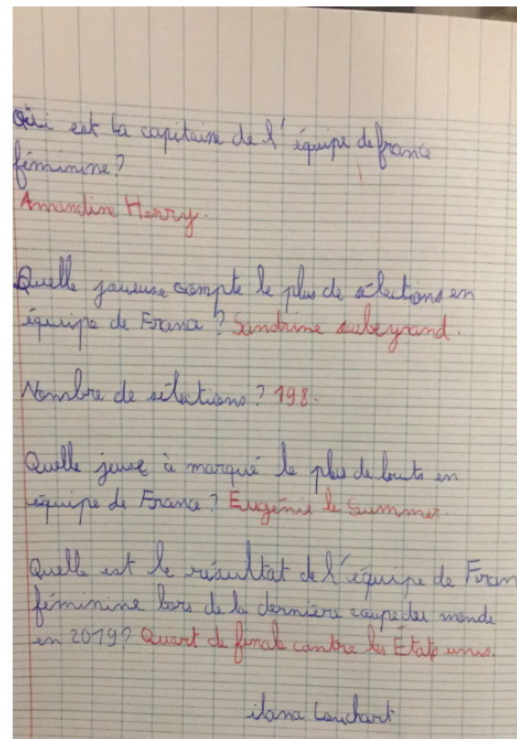 Qui est la capitaine de l'équipe de france
féminine?
Amandine Henry.
Quelle joueuse compte le plus de sélections en
équipe de France ? Sandrine soubeyrand.
Nombre de sélections ? 198.
Quelle jeuse à marqué le plus de buts en
équipe de France ? Eugénie le Sommer
Quelle est le résultat de l'équipe de Fran
féminine lors de la dernière coupe du monde
en 2019? Quart de finale contre les État unis.
ilana Lauchart